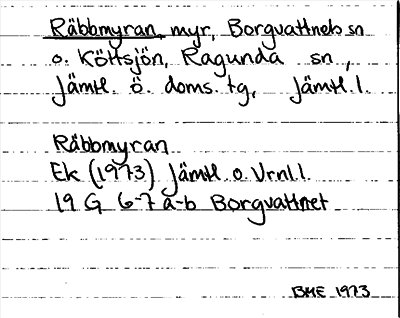 Räbbmyran, myr, Borgvattnets sn
o. Köttsjön, Ragunda sn,
Jämtl. ö. doms. tg, Jämtl. l.
Räbbmyran
Ek (1973) Jämtl o. Vrnl. l.
19 G 6-7 a-b Borgvattnet
BME 1973